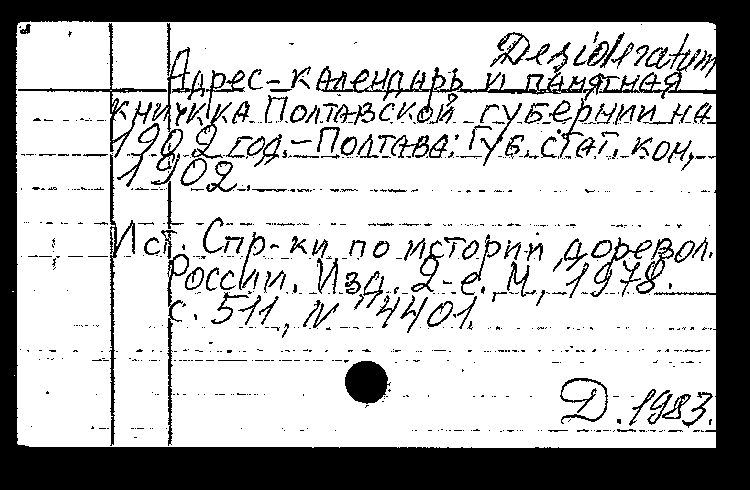 Desideratum
Адрес-календарь и памятная
книжка Полтавской губернии на
1902 год.-Полтава: Губ. стат. ком,
1902.
Ист. Спр-ки по истории доревол.
России. Изд. 2-е., М, 1978.
с. 511, N 4401.
D. 1983.